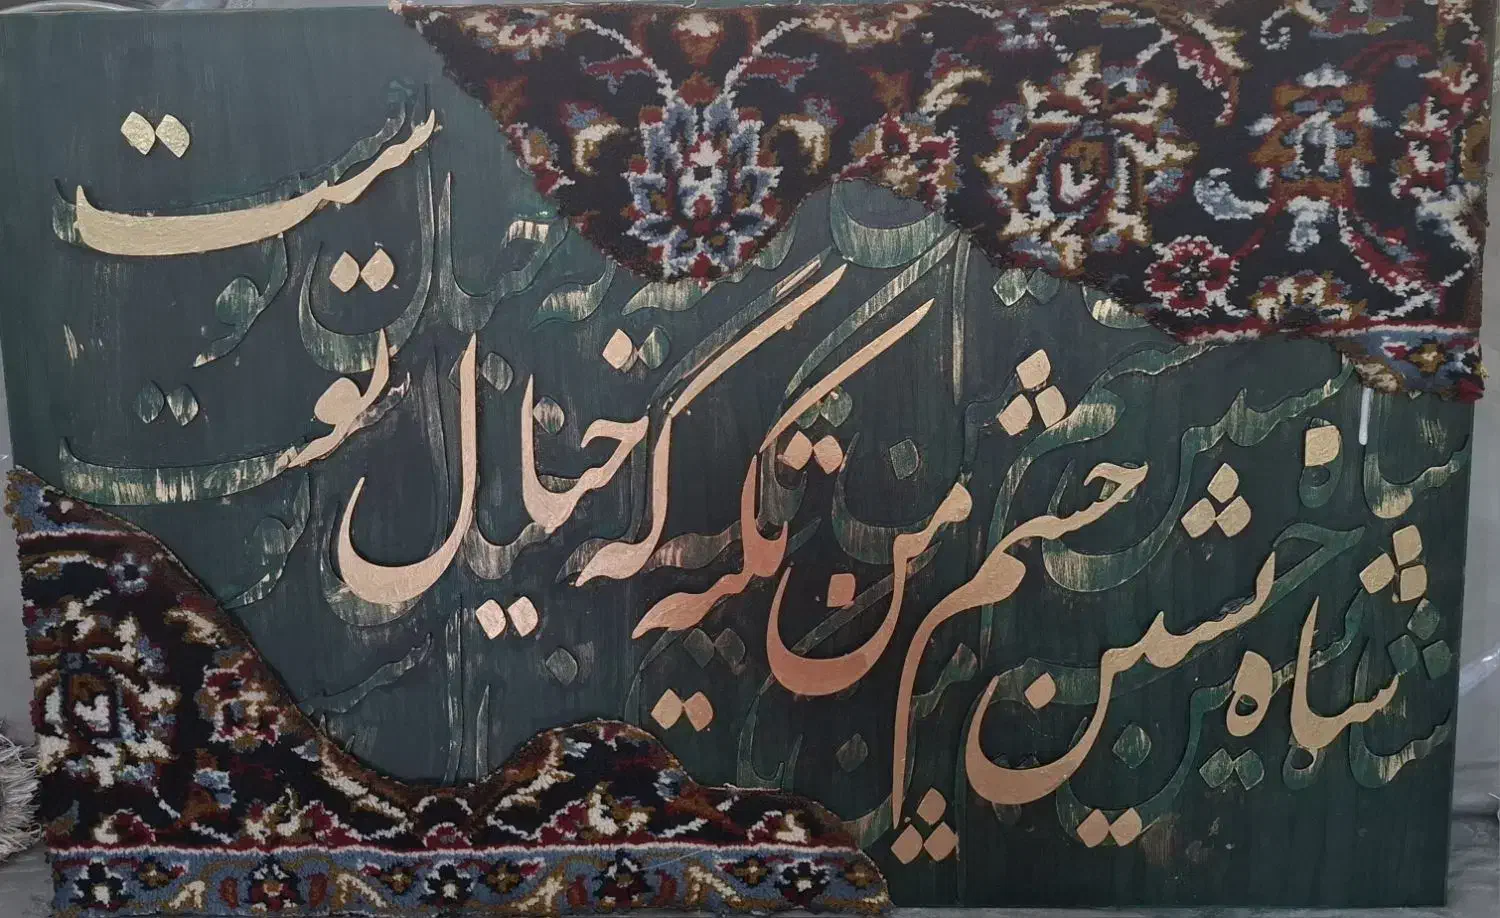 شاه نشین چشم من تکیه گه خیال توست